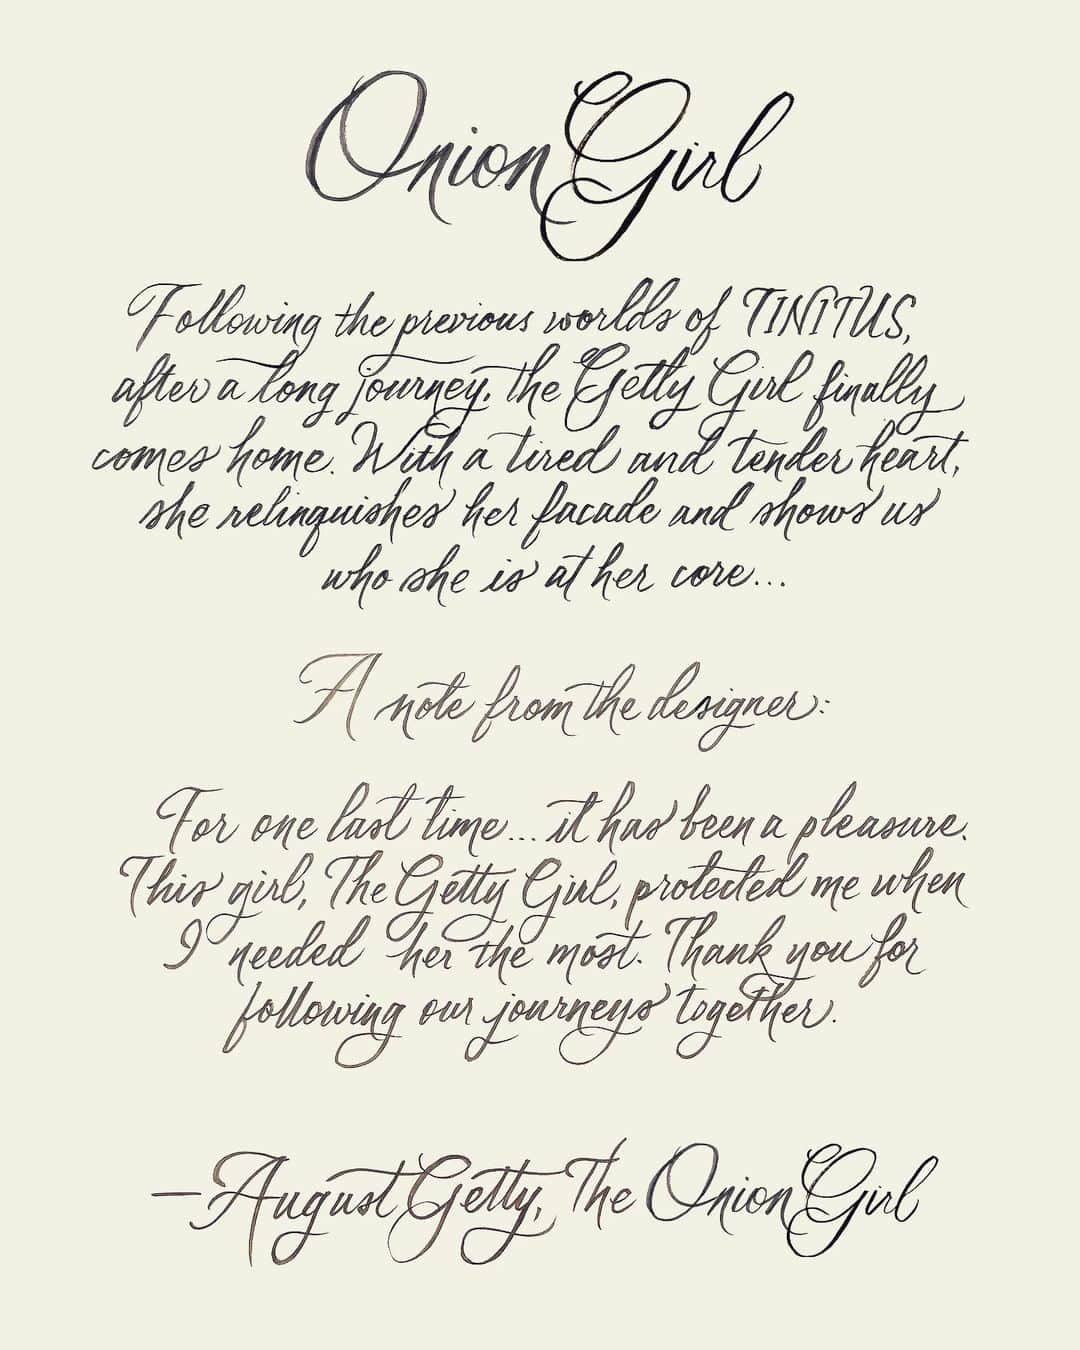 Onion Girl
Following the previous worlds of TINITUS,
after a long journey, the Getty Girl finally
comes home. With a tired and tender heart,
she relinquishes her facade and shows us
who she is at her core...
A note from the designer:
For one last time... it has been a pleasure.
This girl, The Getty Girl, protected me when
I needed her the most. Thank you for
following our journeys together.
—August Getty, The Onion Girl